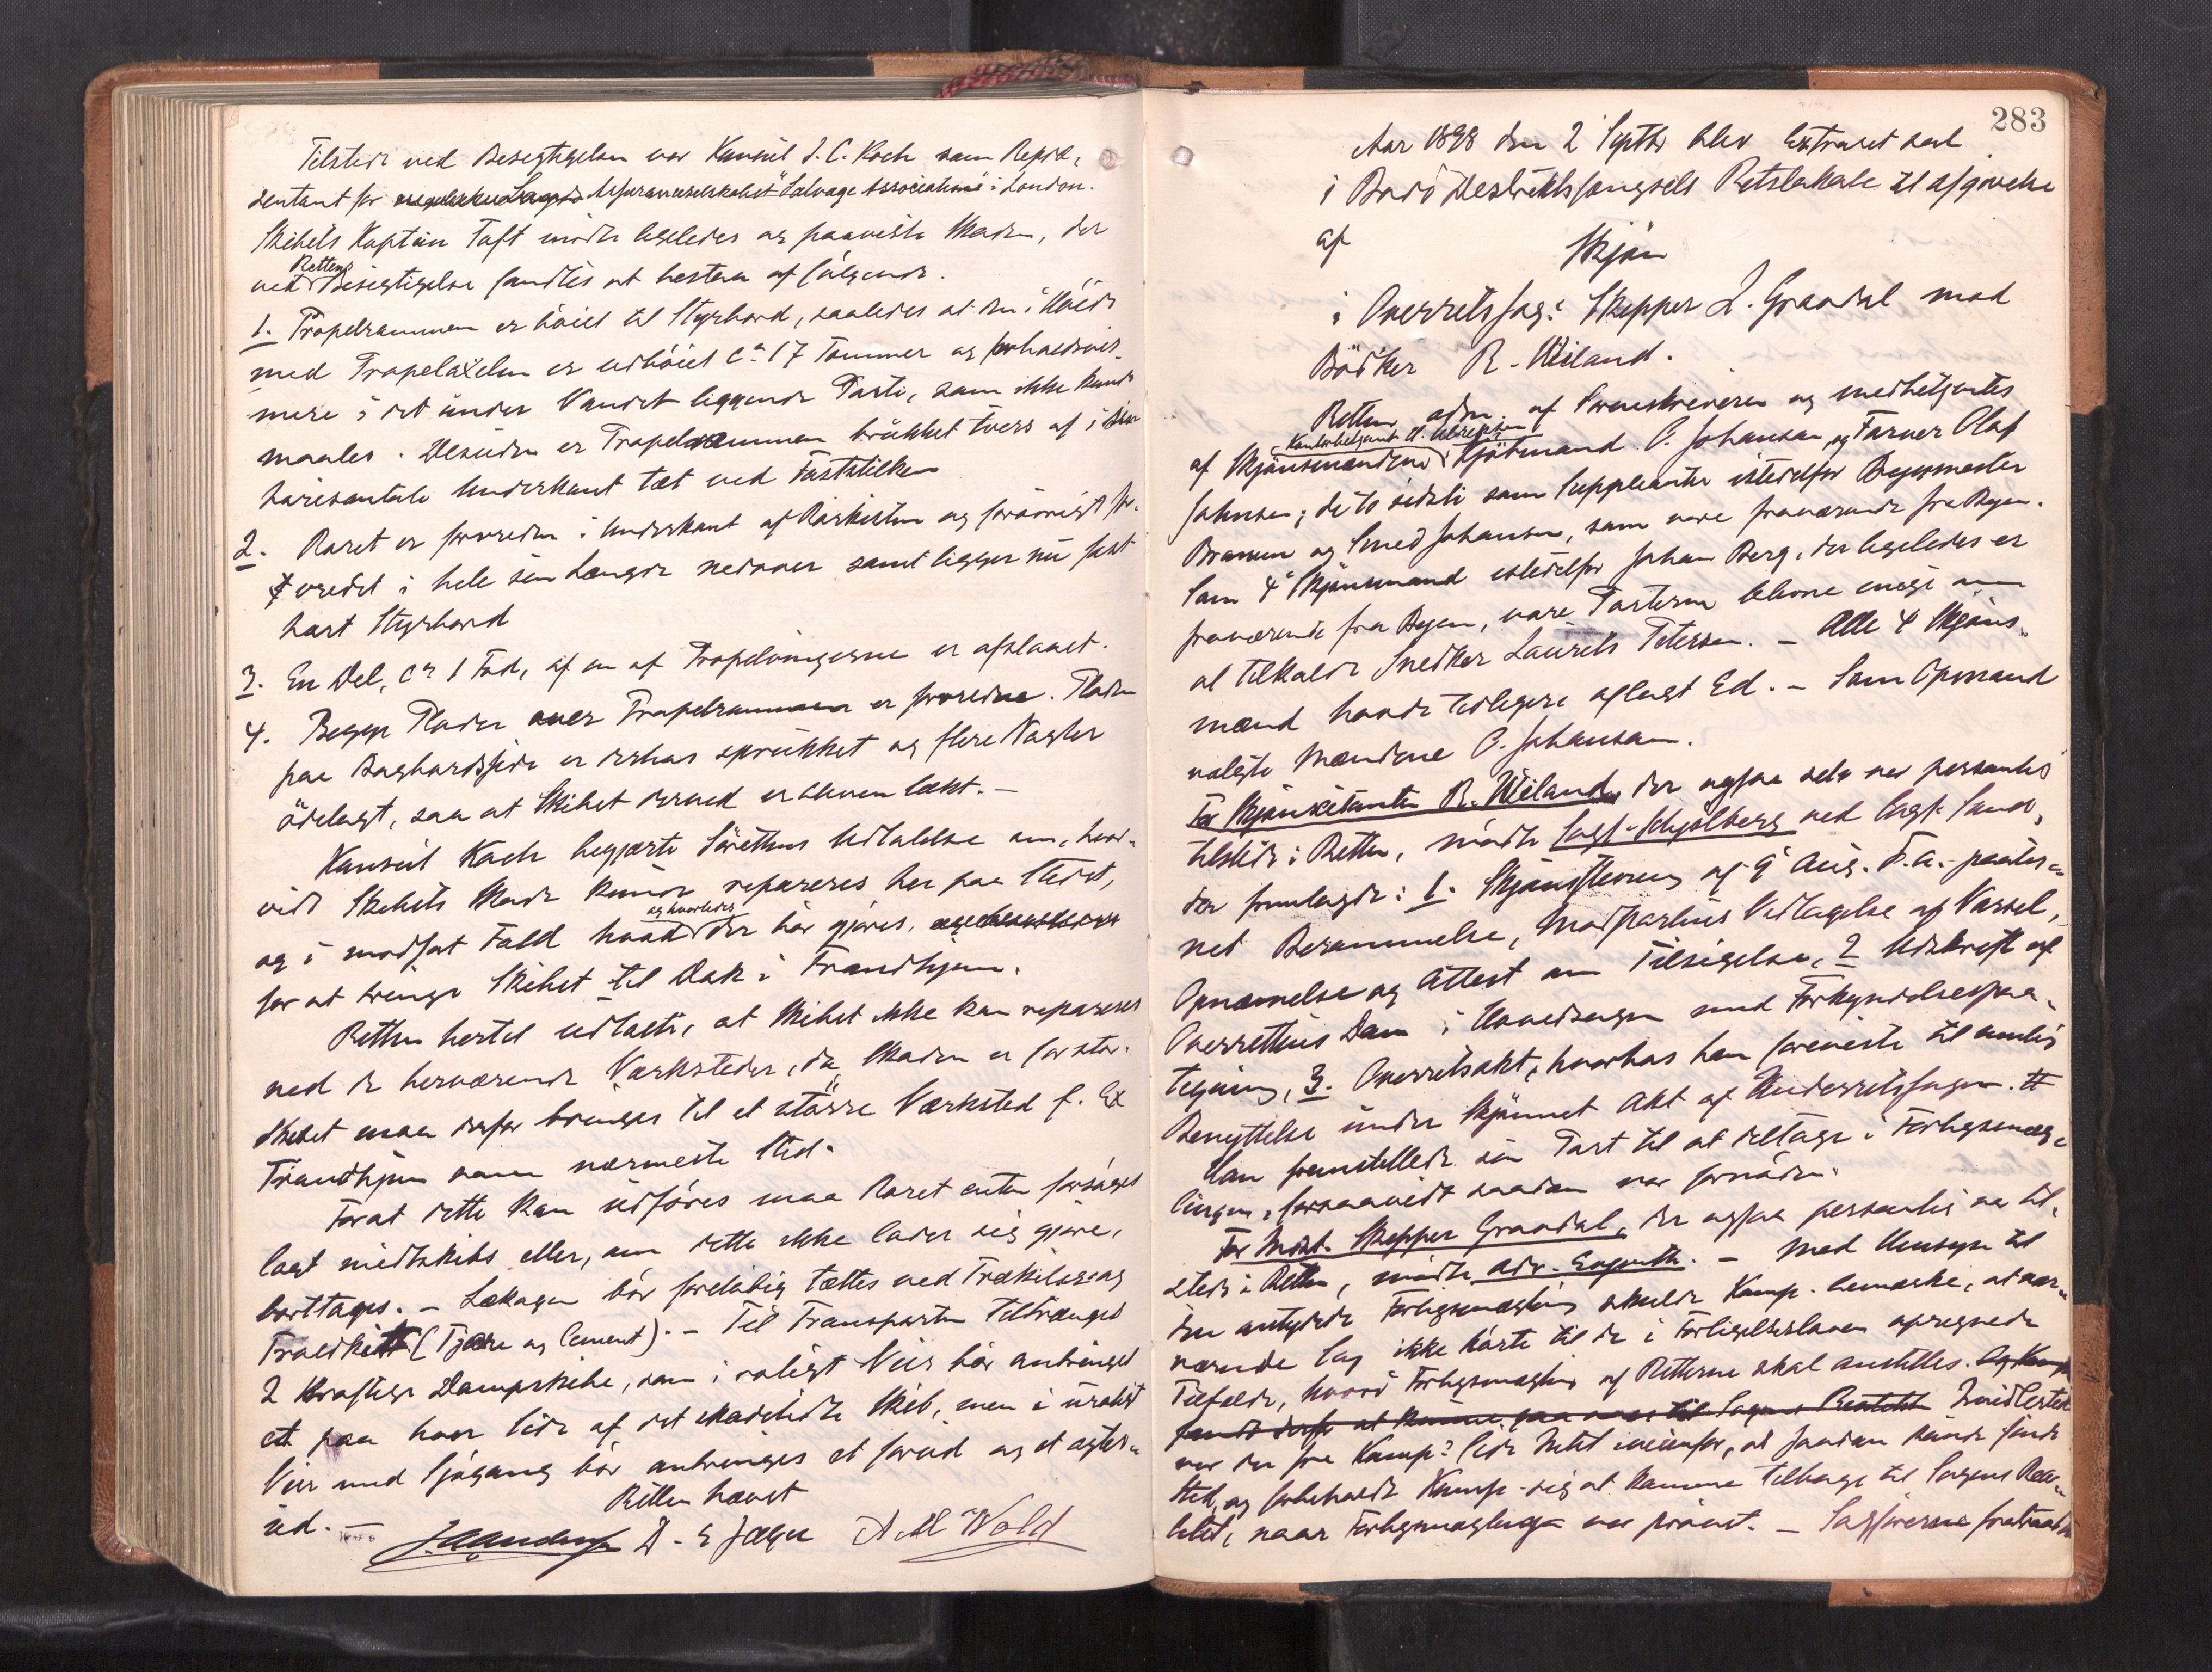 Tilstede ved Besigtigelsen var Konsul J. C. Koch som Repræ-
sentant for Assuranceselskabet "Salvage Association" i London.
Skibets Kaptein Toft mødte ligeledes og paaviste Skaden, der
ved Rettens Besigtigelse fandtes at bestaa af følgende.
1. Propelrammen er bøiet til Styrbord, saaledes at den i Høide
med Propelaxelen er udbøiet ca 17 Tommer og forholdsvis
mere i det under Vandet liggende Parti, som ikke kunde
maales. Desuden er Propelrammen brukket tvers af i den
horisontale Underkant tæt ved Roststilken
2. Roret er forvreden i Underkant af Rorkisten og forøvrigt for-
vredet i hele sin Længde nedover samt ligger nu fast
bort Styrbord
3. En Del, ca 1 Fod, af en af Propelvingerne er afslaaet.
4. Begge Plader over Propelrammen er forvredne. Pladen
paa Bagbordsside er desuden sprukket og flere Nagler
ødelagt, saa at Skibet derved er bleven læk. -
Konsul Koch begjærte Sørettens Udtalelse om, hvor-
vidt Skibets Skade kunde repareres her paa Stedet,
og i modsat Fald hvad og hvorledes der bør gjøres,
for at bringe Skibet til Dok i Trondhjem.
Retten hertil udtalte, at Skibet ikke kan repareres
ved de herværende Værksteder, da Skaden er for stor.
Skibet maa derfor bringes til et større Værksted f. Ex
Trondhjem som nærmeste Sted.
Forat dette kan udføres maa Roret enten forsøges
lagt midtskibs eller, om dette ikke lader sig gjøre,
borttages. - Lækagen bør foreløbig tættes ved Trækiler og
(Tjære og Cement). - Til Transporten tiltrænges
2 kraftige Dampskibe, som i roligt Veir bør anbringes
et paa hver Side af det skadelidte Skib, men i uroligt
Veir med Sjøgang bør anbringes et forud og et agter-
ud. -
Retten hævet
D. S Jæger A M Wold
283
Aar 1898 den 2 Septbr blev Extraret sat
i Bodø Destriktsfængsels Retslokale til afgivelse
af
Skjøn
i Overretssag: Skipper L. Grondal mod
Bødker R. Weiland.
Retten adm. af Sorenskriveren og medbetjentes
af Skjønsmændene Kontorbetjent Kjøbmand O. Johansen og Farver Olaf
Johnsen; de to sidste som Suppleanter istedetfor Bygmester
Bramen og Smed Johansen, som vare fraværende fra Byen.
Som 4de Skjønsmand istedetfor Johan Berg, der ligeledes er
fraværende fra Byen, vare Parterne blevne enige om
at tilkalde Snedker Laurits Petersen. - Alle 4 Skjøns-
mænd havde tidligere aflagt Ed. - Som Opmand
valgte Mændene O. Johansen.
For Skjønscitanten R. Weiland, der ogsaa selv var personlig
tilstede i Retten, mødte Sagf. Schjølberg ved Sagf. Sand,
der fremlagde: 1. Skjønsstevning af 9 Aug. d. A. paateg-
net Berammelse, Modpartens Vedtagelse af Varsel,
Opnævnelse og Attest om Tilsigelse, 2 Udskrift af
Overrettens Dom i Hovedsagen med Forkyndelsespaa-
tegning, 3. Overretsakt, hvorhos han foreviste til emulig
Benyttelse under Skjønnet Akt af Underretssagen.
Han fremstillede sin Part til at deltage i Forligsmæg-
lingen, forsaavidt saadan var fornøden.
For Indst. Skipper Grondal, der ogsaa personlig var til-
stede i Retten, mødte adv. - Med Hensyn til
den antydede Forligsmægling skulde Komp. bemærke, at nær-
værende Sag ikke hørte til de i Forligelseslaven opregnede
Tilfælde, hvori Forligsmægling af Retterne skal anstilles. Og Komp
fandt derfor at kunne gaa over til Sagens Realitet Imidlertid
var der fra Komp.s Side Intet iveien for, at saadan kunde finde
Sted, og forbeholdt Komp. sig at komme tilbage til Sagens Rea-
litet, naar Forligsmægling var prøvet. - Sagførerne fratraadte